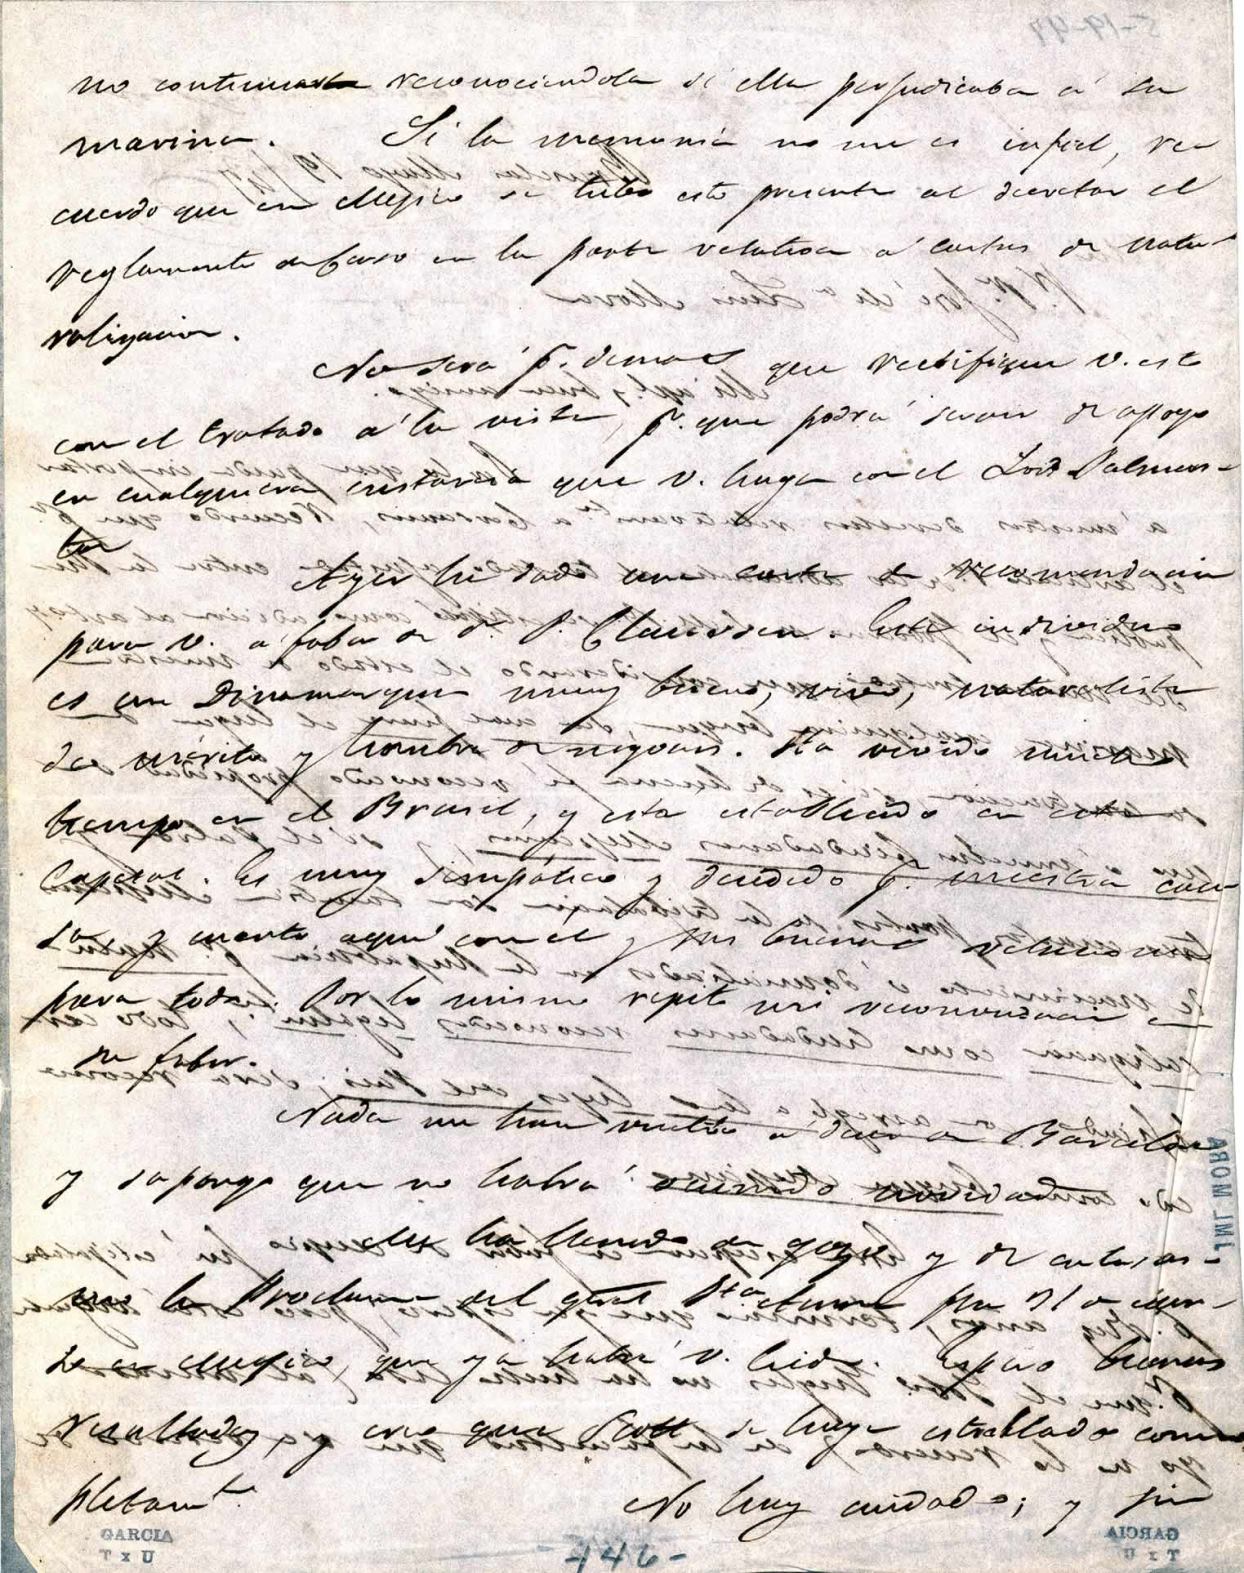 no continuara reconociendola si ella perjudicaba á su
marina. Si la memoria no me es infiel, re
cuerdo que en Mejico se tubo esto presente al decretar el
reglamento de Corso en la parte relativa á cartas de natu-
ralizacion.
No será pr. demas que rectifique V. esto
con el tratado á la vista, pr. que podrá servir de apoyo
en cualquiera instancia que V. haga con el Lord Palmers-
ton
Ayer he dado una carta de recomendacion
para V. a fabor de Dn. P. Claussen. Este individuo
es un Dinamarques muy bueno, vivo, naturalista
de mérito y hombre de negocios. Ha vivido mucho
tiempo en el Brasil, y esta establecido en esta
Capital. Es muy simpático y decidido pr. nuestra cau-
sa y cuento aquí con el y sus buenas relaciones
para todo. Por lo mismo repito mi recomendacion en
su fabor.
Nada me han vuelto a decir de Barcelona
y supongo que no habrá ocurrido novedad
Me ha llenado de gozo y de entusias-
mo la Proclama del gral Sta. Anna fha 31 o
de en Mejico, que ya habrá V. leido. Espero buenos
resultados, y creo que Scott se haya estrellado com-
pletamte. No hay cuidado; y sin
5-19-47
JML MORA
GARCIA
T x U
GARCIA
T x U
-446-